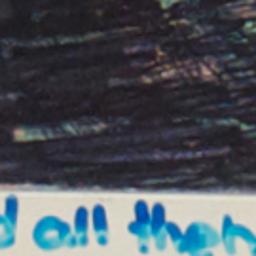 d all then